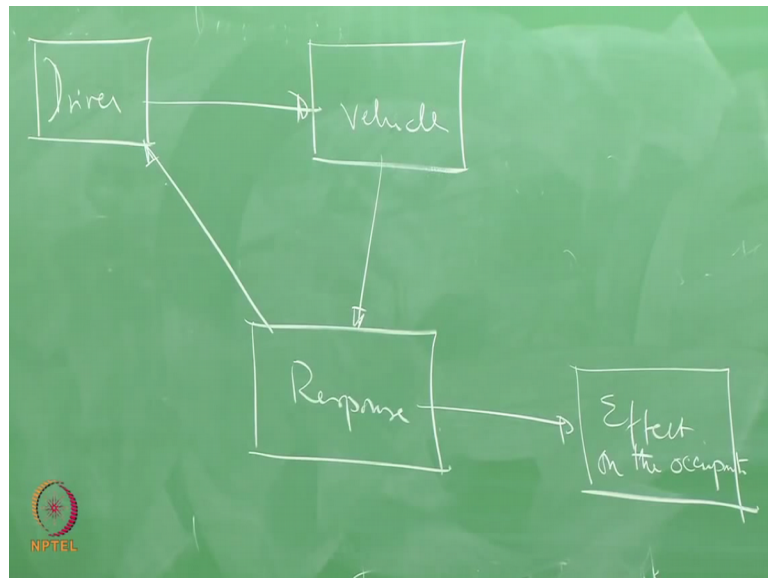 Driver
Vehicle
Response
Effect
on the occupant
NPTEL